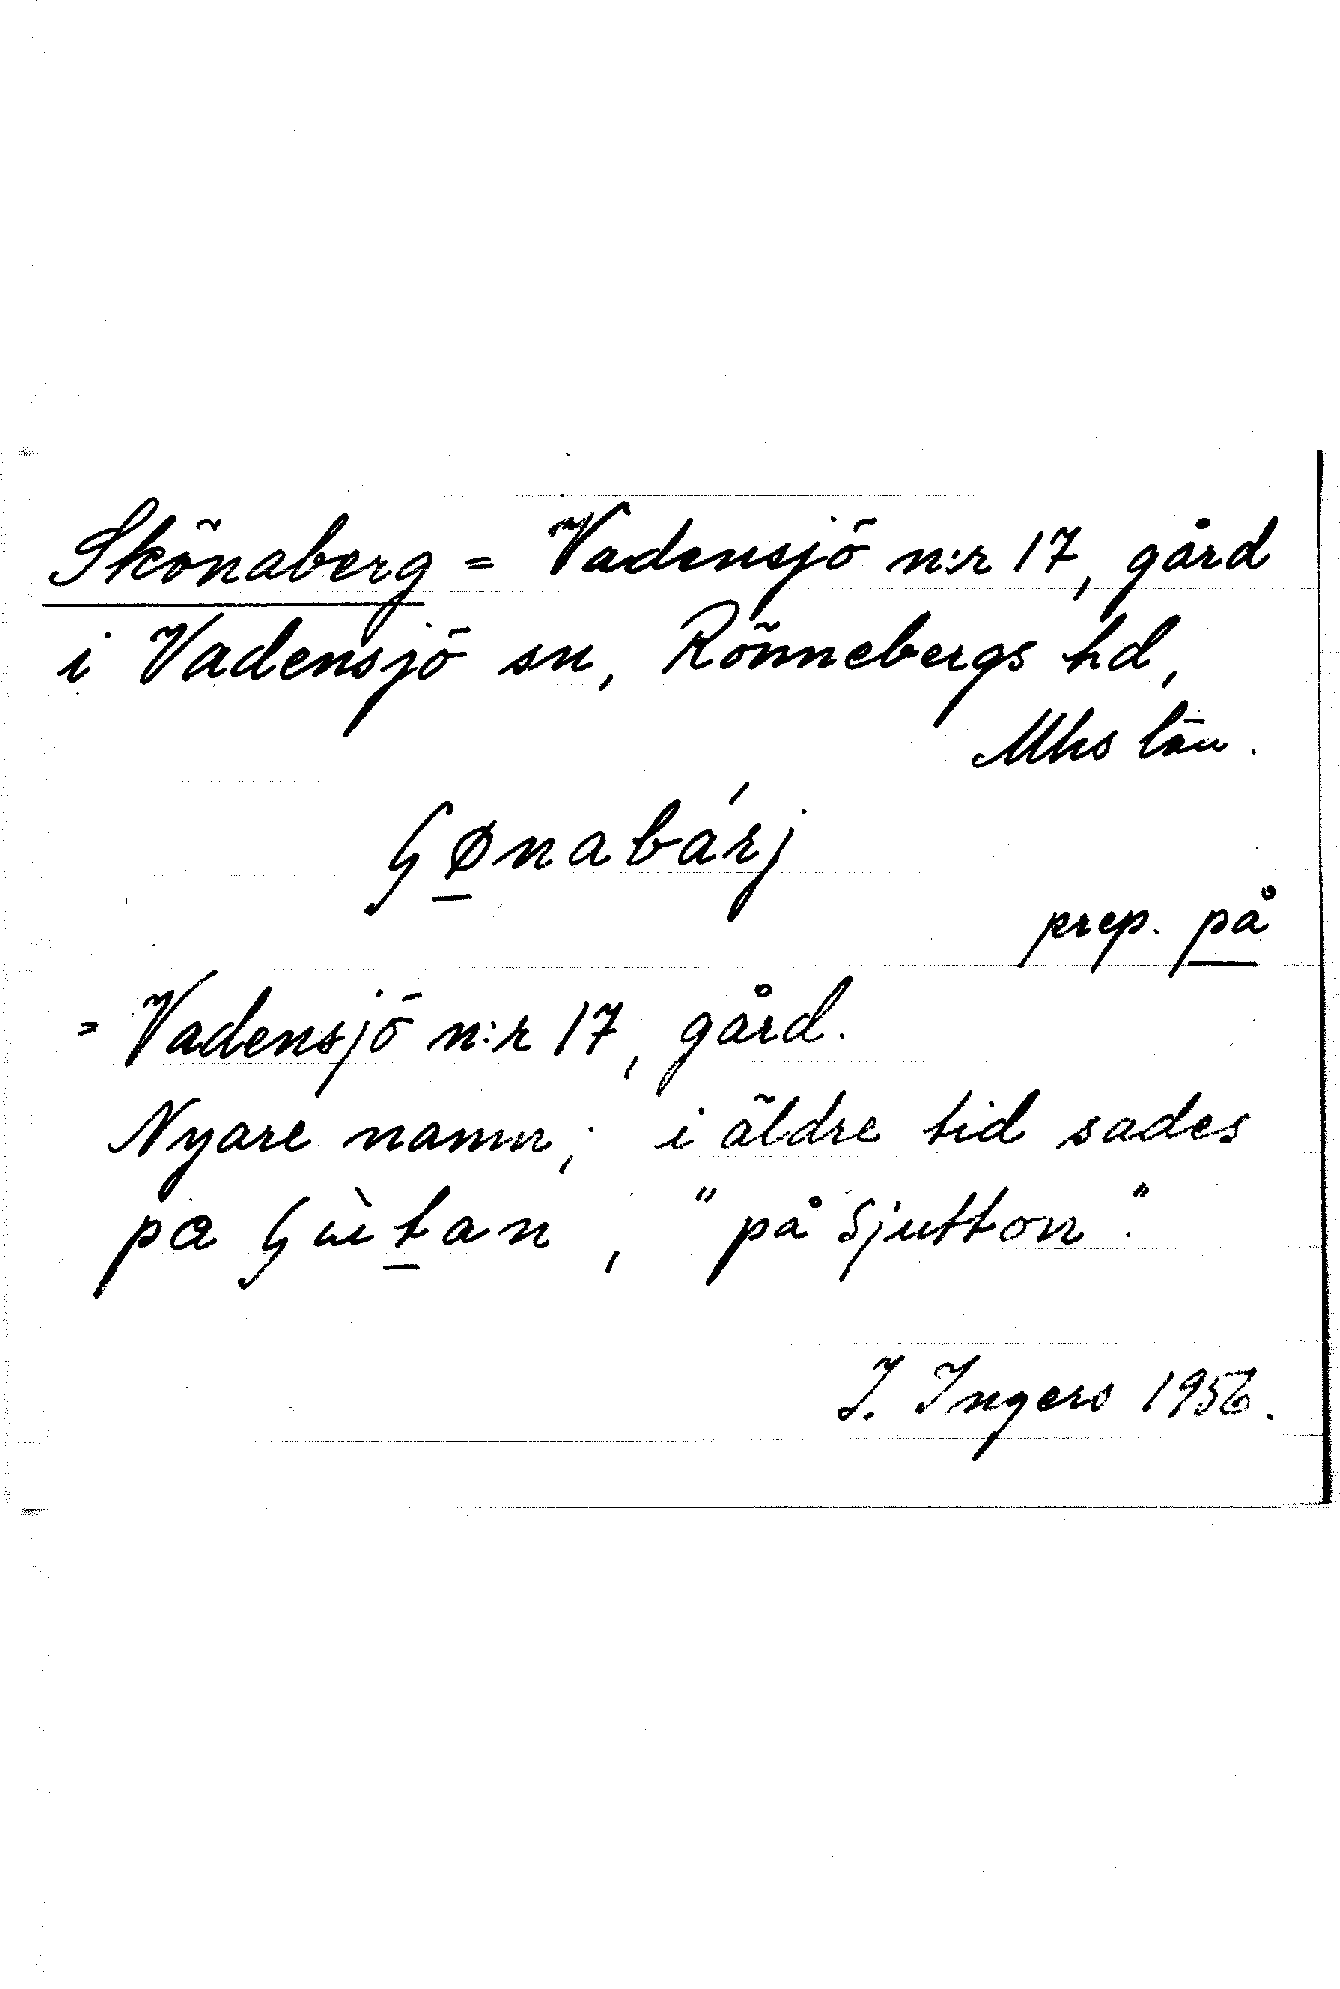 Skönaberg = Vadensjö n:r 17, gård
i Vadensjö sn, Rönnebergs hd,
Mhs län.
ʕø̱nabárj
prep. på
= Vadensjö n:r 17, gård.
Nyare namn; i äldre tid sades
pa ʕùṯan, "på Sjutton".
I. Ingers 1956.